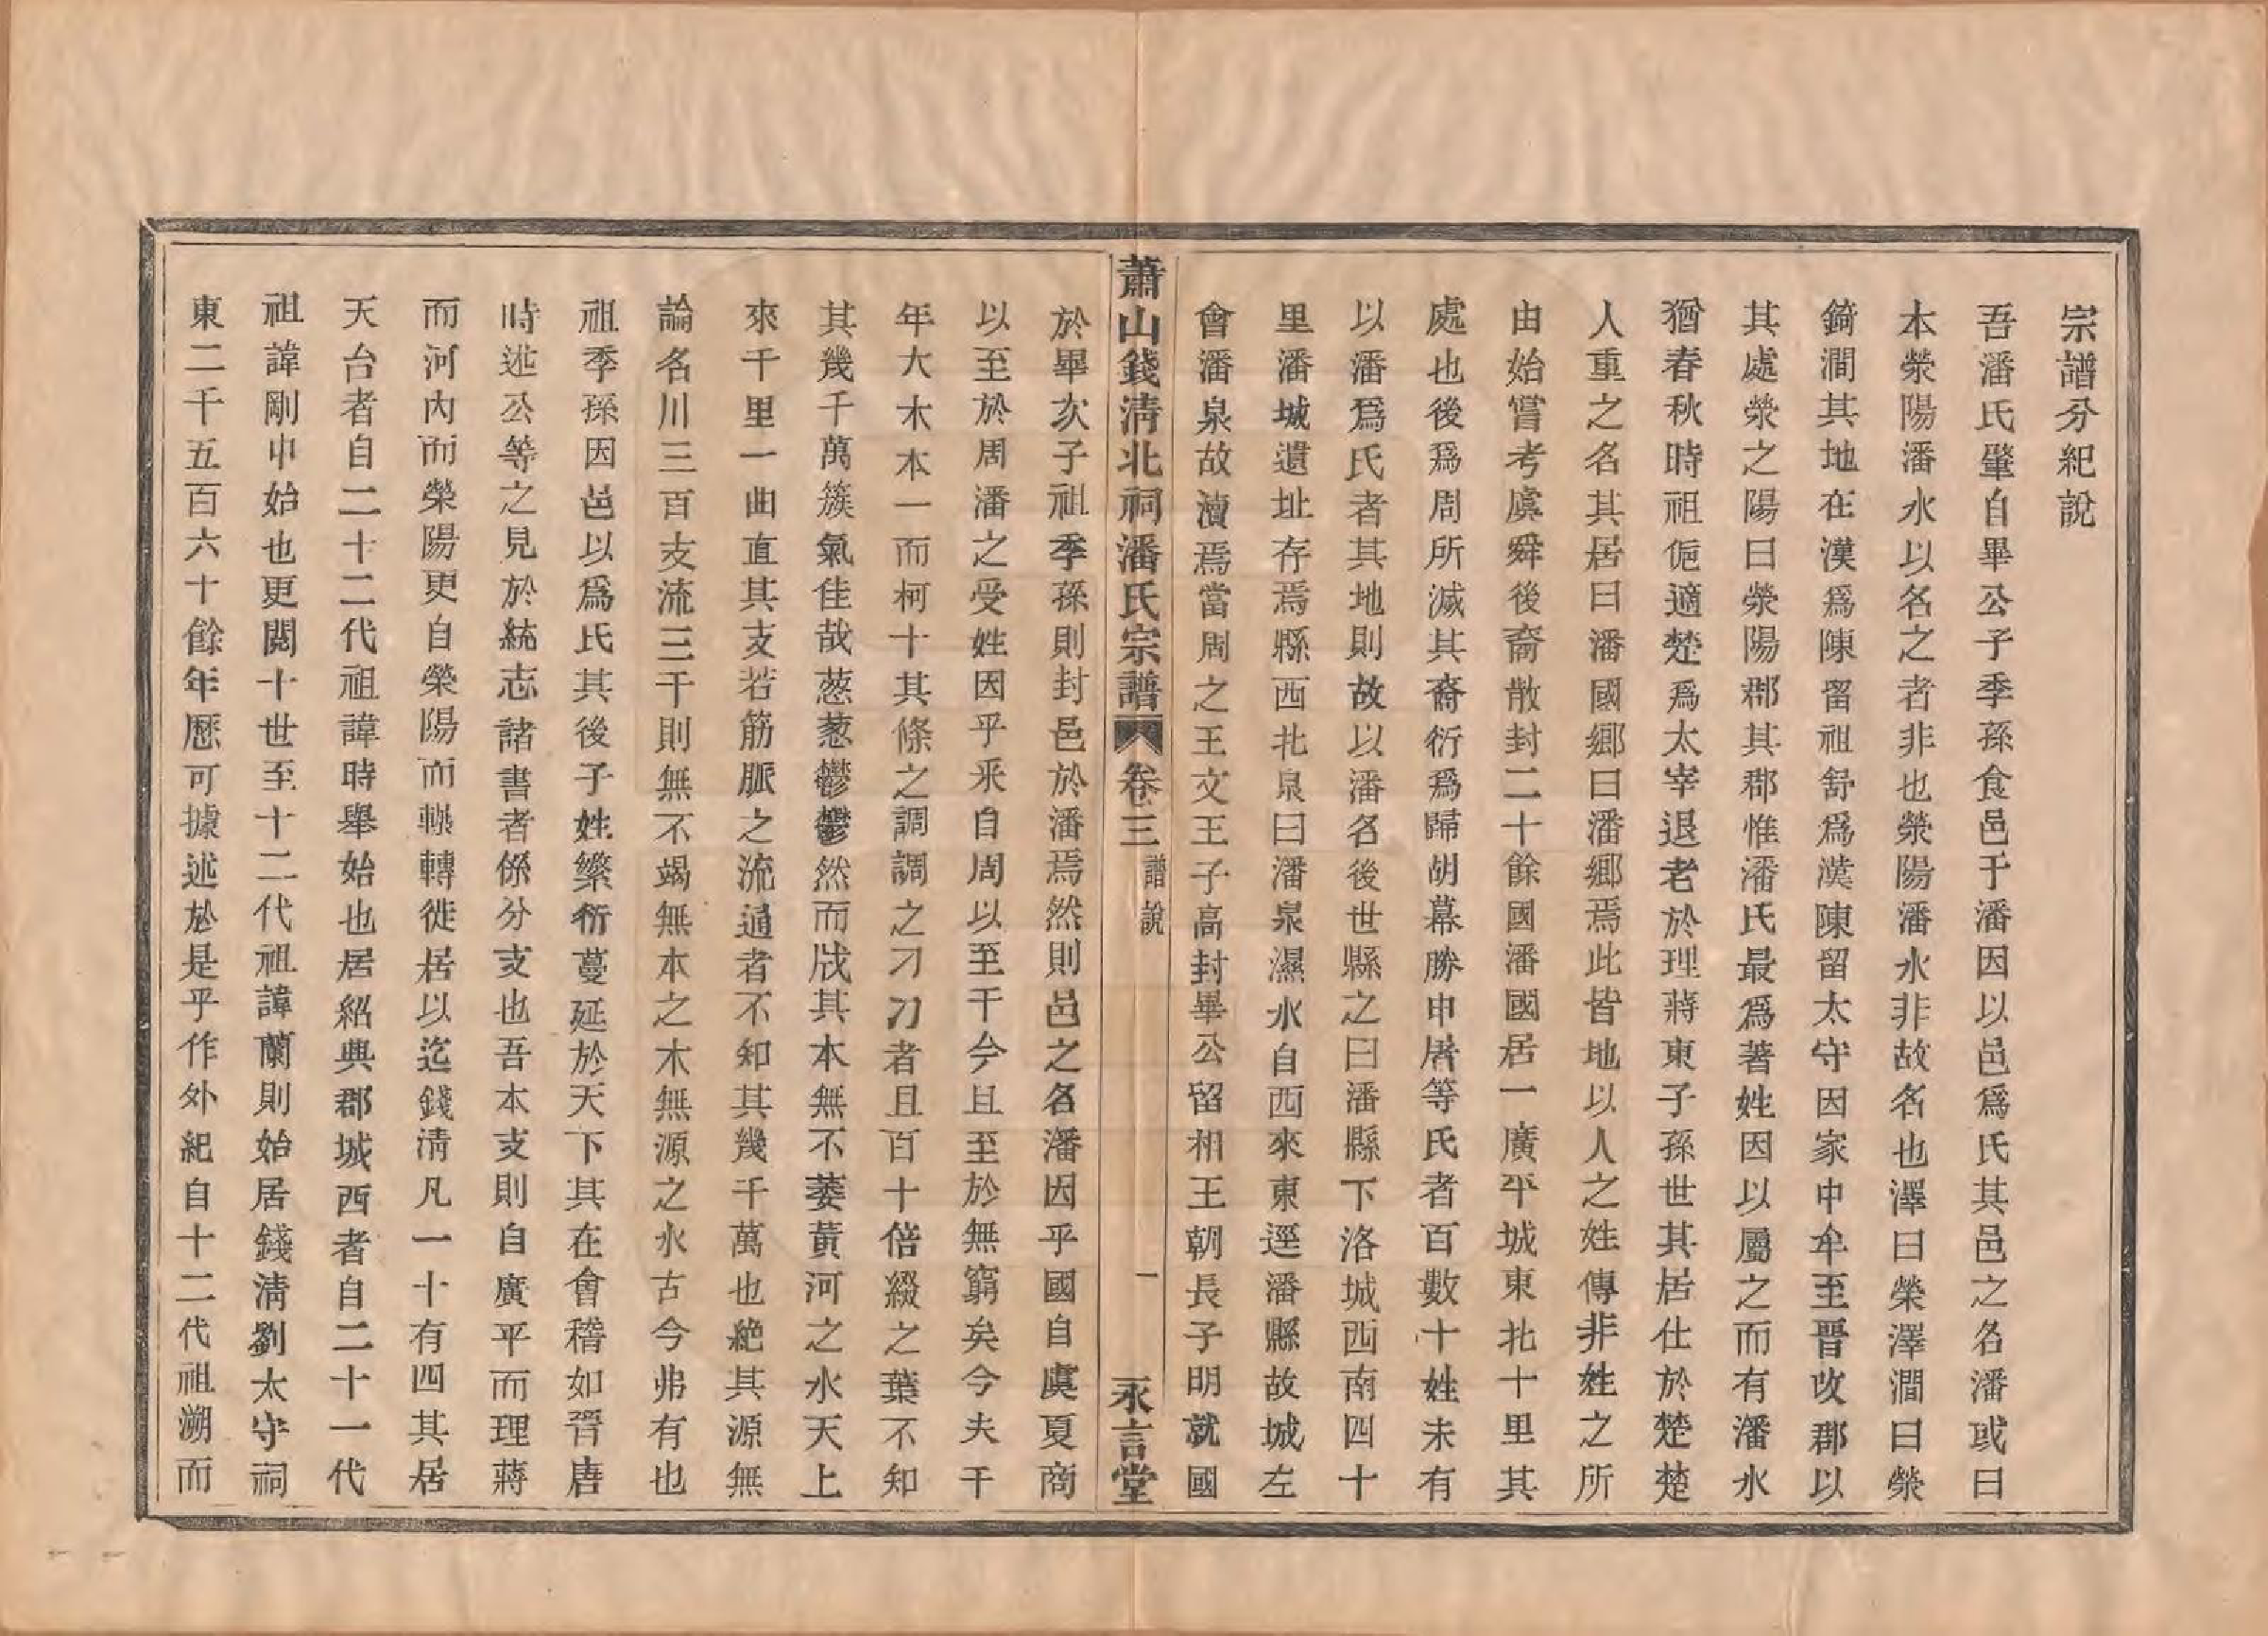 宗譜分紀說
吾潘氏肇自畢公子季孫食邑于潘因以邑爲氏其邑之名潘或曰
本滎陽潘水以名之者非也滎陽潘水非故名也澤曰滎澤澗曰滎
錡澗其地在漢爲陳留祖舒爲漢陳留太守因家中牟至晋改郡以
其處滎之陽曰滎陽郡其郡惟潘氏最爲著姓因以屬之而有潘水
猶春秋時祖㐌適楚爲太宰退老於理蔣東子孫世其居仕於楚楚
人重之名其居曰潘國鄉曰潘鄉焉此皆地以人之姓傳非姓之所
由始嘗考虞舜後裔散封二十餘國潘國居一廣平城東北十里其
處也後爲周所滅其裔衍爲歸胡幕勝申屠等氏者百數十姓未有
以潘爲氏者其地則故以潘名後世縣之曰潘縣下洛城西南四十
里潘城遺址存焉縣西北泉曰潘泉濕水自西來東逕潘縣故城左
會潘泉故瀆焉當周之王文王子高封畢公留相王朝長子明就國
蕭山錢淸北祠潘氏宗譜 卷三 譜說 一 永言堂
於畢次子祖季孫則封邑於潘焉然則邑之名潘因乎國自虞夏商
以至於周潘之受姓因乎釆自周以至干今且至於無窮矣今夫干
年大木本一而柯十其條之調調之刁刁者且百十倍綴之葉不知
其幾千萬簇氣佳哉葱葱鬱鬱然而戕其本無不萎黃河之水天上
來千里一曲直其支若筋脈之流通者不知其幾千萬也絶其源無
論名川三百支流三干則無不竭無本之木無源之水古今弗有也
祖季孫因邑以爲氏其後子姓繁衍蔓延於天下其在會稽如晉唐
時述公等之見於統志諸書者係分支也吾本支則自廣平而理蔣
而河內而滎陽更自滎陽而轉轉徙居以迄錢淸凡一十有四其居
天台者自二十二代祖諱時舉始也居紹典郡城西者自二十一代
祖諱剛中始也更閱十世至十二代祖諱蘭則始居錢淸劉太守祠
東二千五百六十餘年歷可據述於是乎作外紀自十二代祖溯而